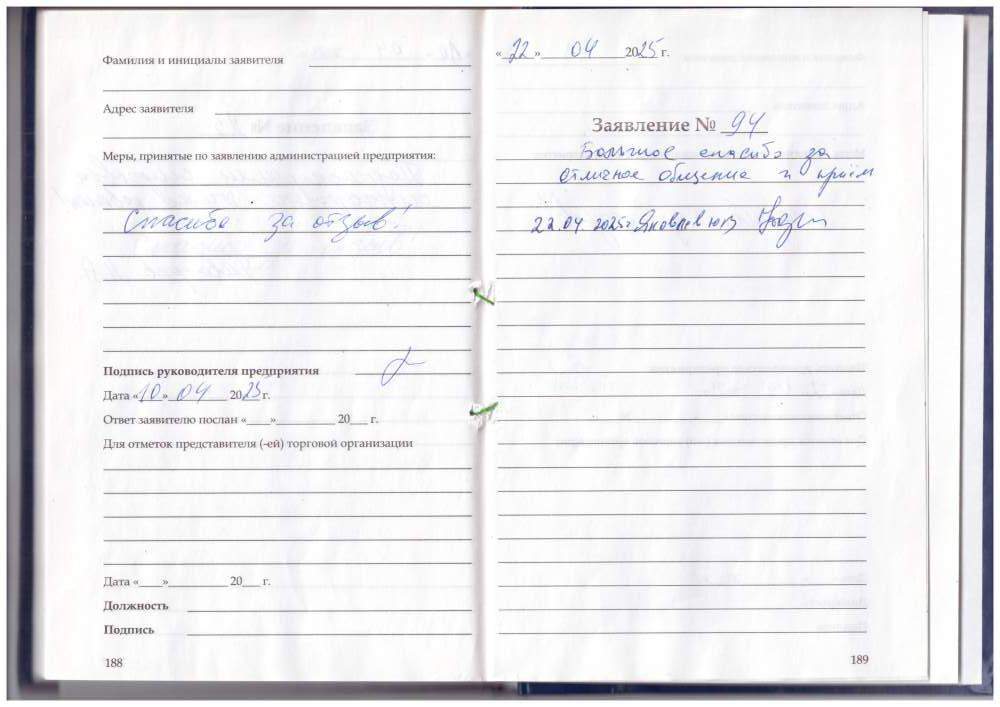 Фамилия и инициалы заявителя
Адрес заявителя
Меры, принятые по заявлению администрацией предприятия:
Спасибо за отзыв!
Подпись руководителя предприятия
Дата «10» 04 2025 г.
Ответ заявителю послан «____»__________ 20___ г.
Для отметок представителя (-ей) торговой организации
Дата «____»__________ 20___ г.
Должность
Подпись
188
«22» 04 2025 г.
Заявление № 94
Большое спасибо за
отличное общение и приём
22.04.2025г Яковлев
189